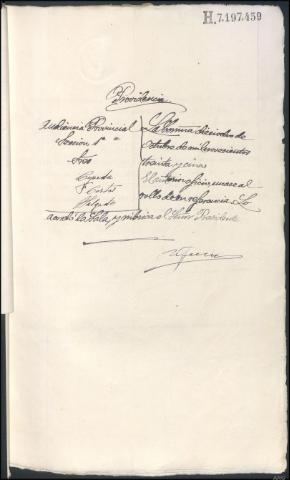 H.7.197.459
Providencia
Audiencia Provincial
Sección 1ª
Sres
Cepeda
F. Cortés
Delgado
Salamanca dieciocho de
octubre de mil novecientos
treinta y cinco
El anterior oficio, únase al
rollo de su referencia. Lo
acordó la Sala, y rubrica el Señor Presidente